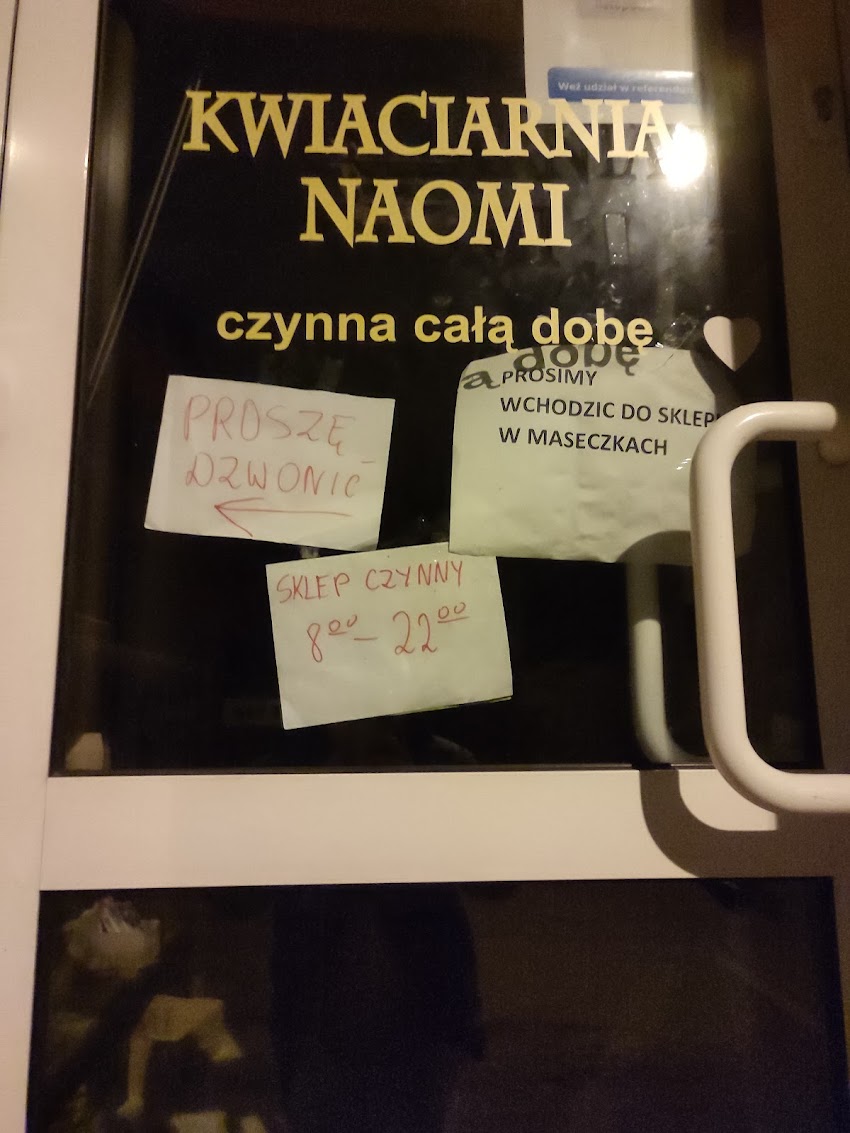 Weź udział w referendum
KWIACIARNIA
NAOMI
czynna całą dobę
PROSZĘ
DZWONIĆ
PROSIMY
WCHODZIC DO SKLEPU
W MASECZKACH
SKLEP CZYNNY
8⁰⁰ – 22⁰⁰